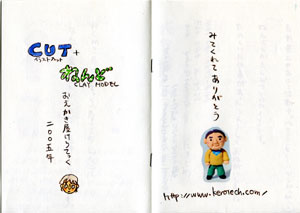 CUT+
イラストカット
ねんど
CLAY MODEL
おえかき屋けろてっく
二〇〇五年
みてくれてありがとう
http://www.kerotech.com/